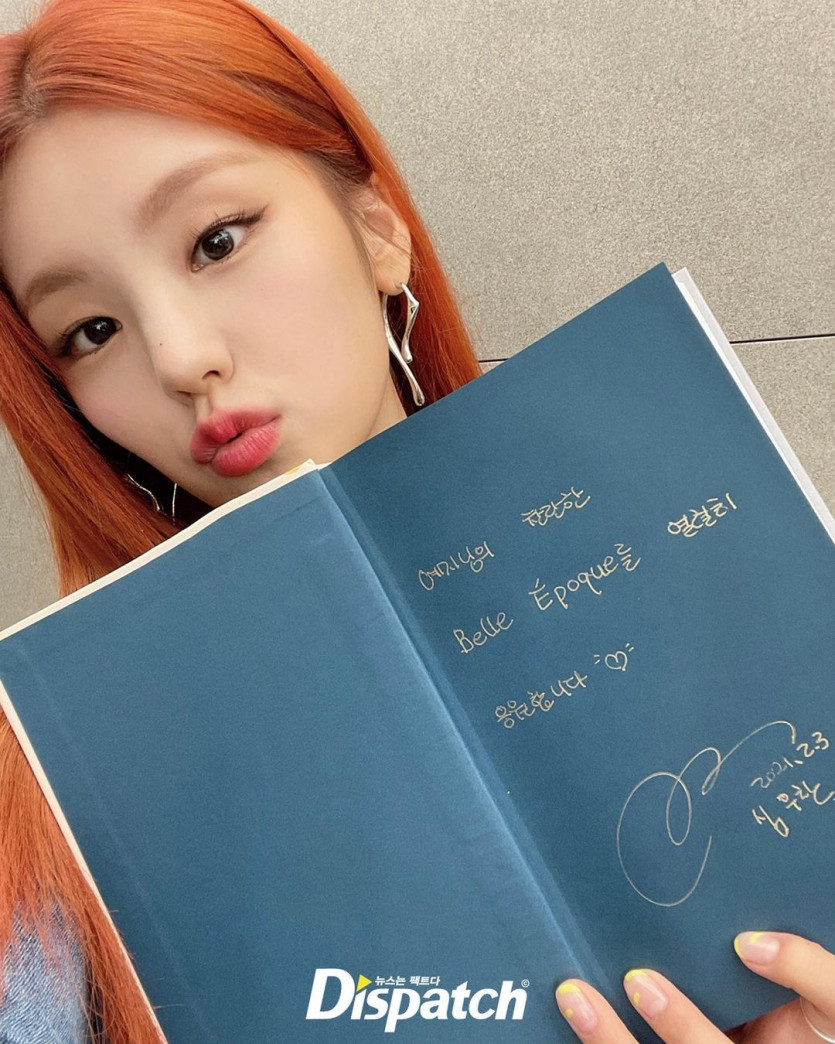 예지님의 찬란한
Belle Époque를 열렬히
응원합니다
2021. 2. 3
뉴스는 팩트다
Dispatch©